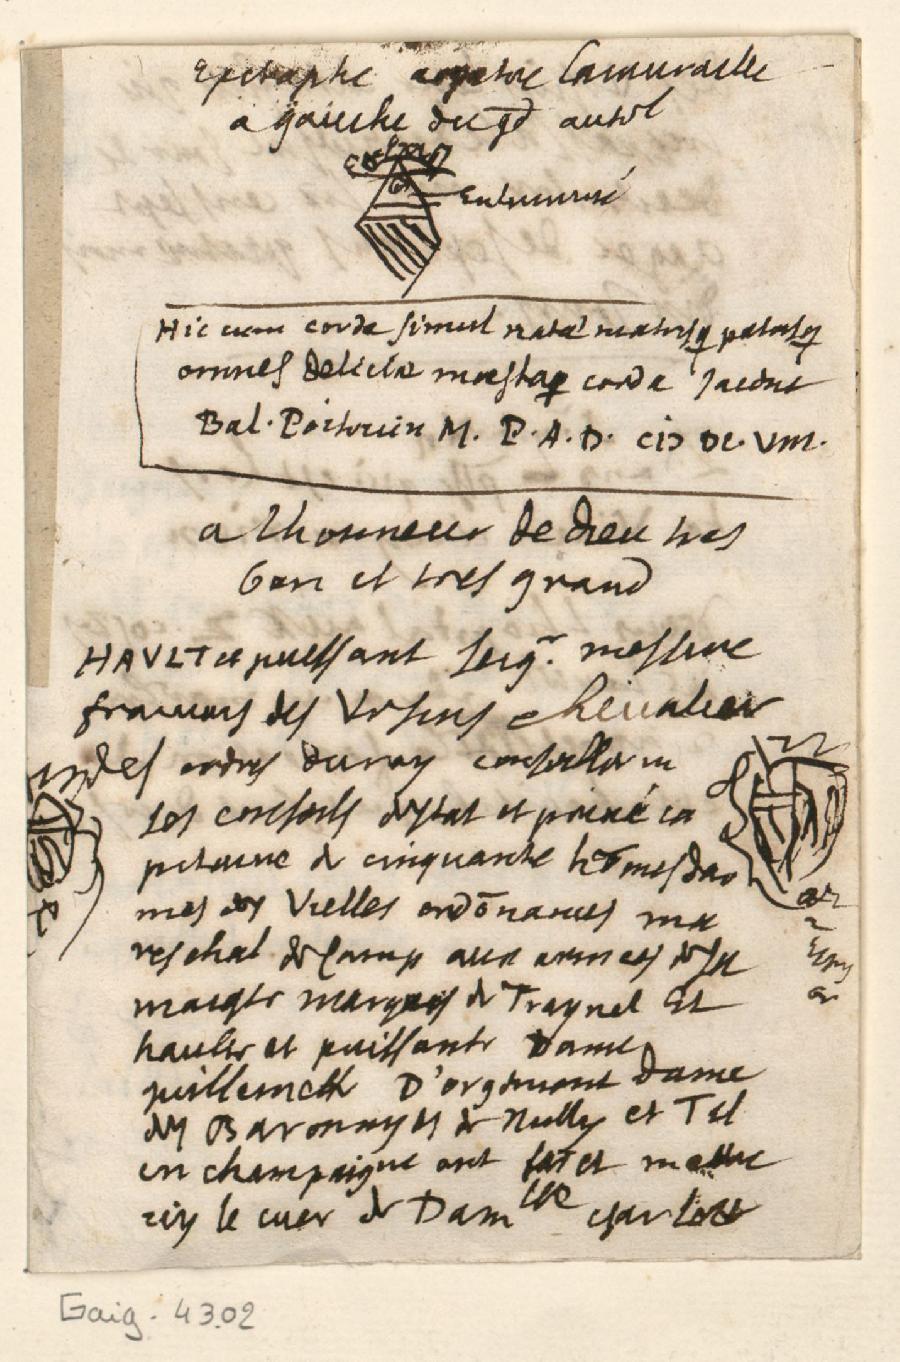 Epitaphe contre lamuraille
a gauche du gd autel
Hic cum corde simul natae matrisq patrisq
omnes deliciae moestaq corda jacent
Bal. Poitevin M. P. A. D. CIↃ DC. VIII.
a Lhonneur de dieu tres
bon et tres grand
HAVLT et puissant seigr. messire
francois des Vrsins chevalier
des ordres du roy conseiller en
ses conseils destat et privé ca
pitaine de cinquante hōmes dar
mes des Vielles ordōnances ma
reschal de camp aux armes de sa
maiesté marquis de Traynel Et
haulte et puissante Dame
guillemette D'orgemont dame
des Baronnyes de Nully et Til
en champaigne ont fait mettre
icy le cuer de Damlle charlotte
Gaig. 4302